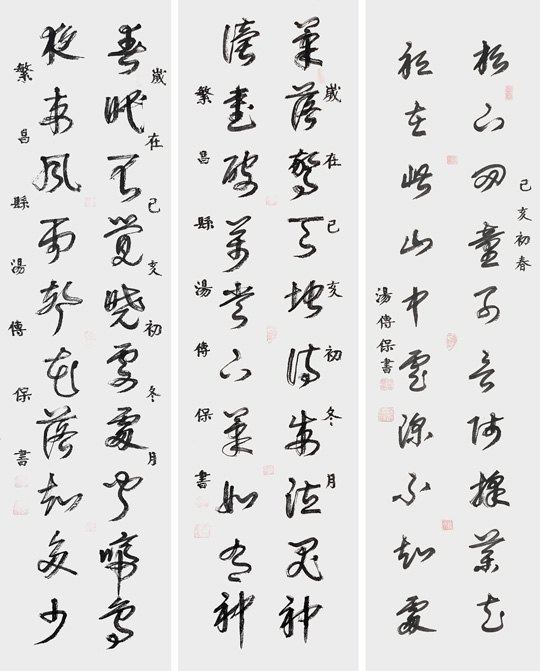 己亥初春
松下問童子言師採藥去
祇在此山中雲深不知處
湯傳保書
歲在己亥初冬月
筆落驚天地詩成泣鬼神
讀書破萬卷下筆如有神
繁昌縣湯傳保書
歲在己亥初冬月
春眠不覺曉處處聞啼鳥
夜來風雨聲花落知多少
繁昌縣湯傳保書